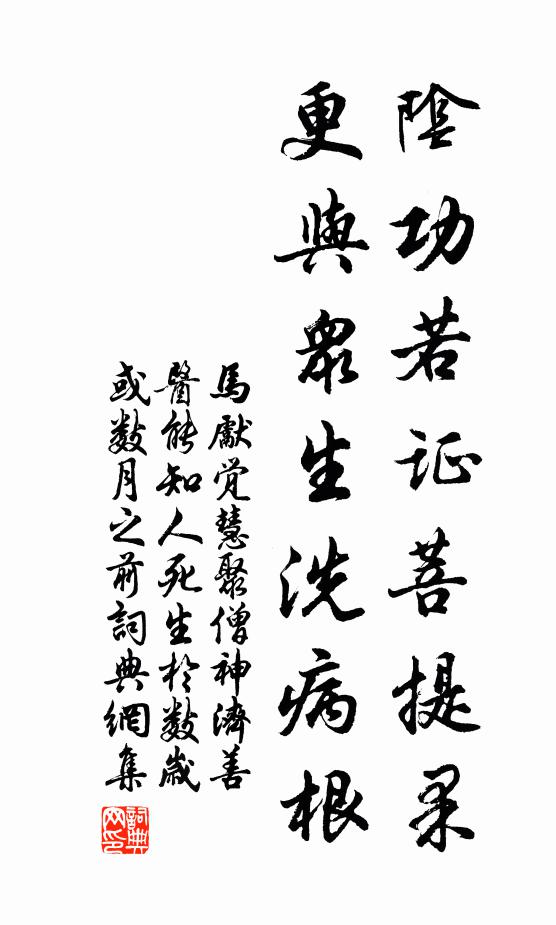 陰功若证菩提果
更與眾生洗病根
馬獻觉慧聚僧神濟善
醫能知人死生於數歲
或數月之前詞典網集
詞典网印